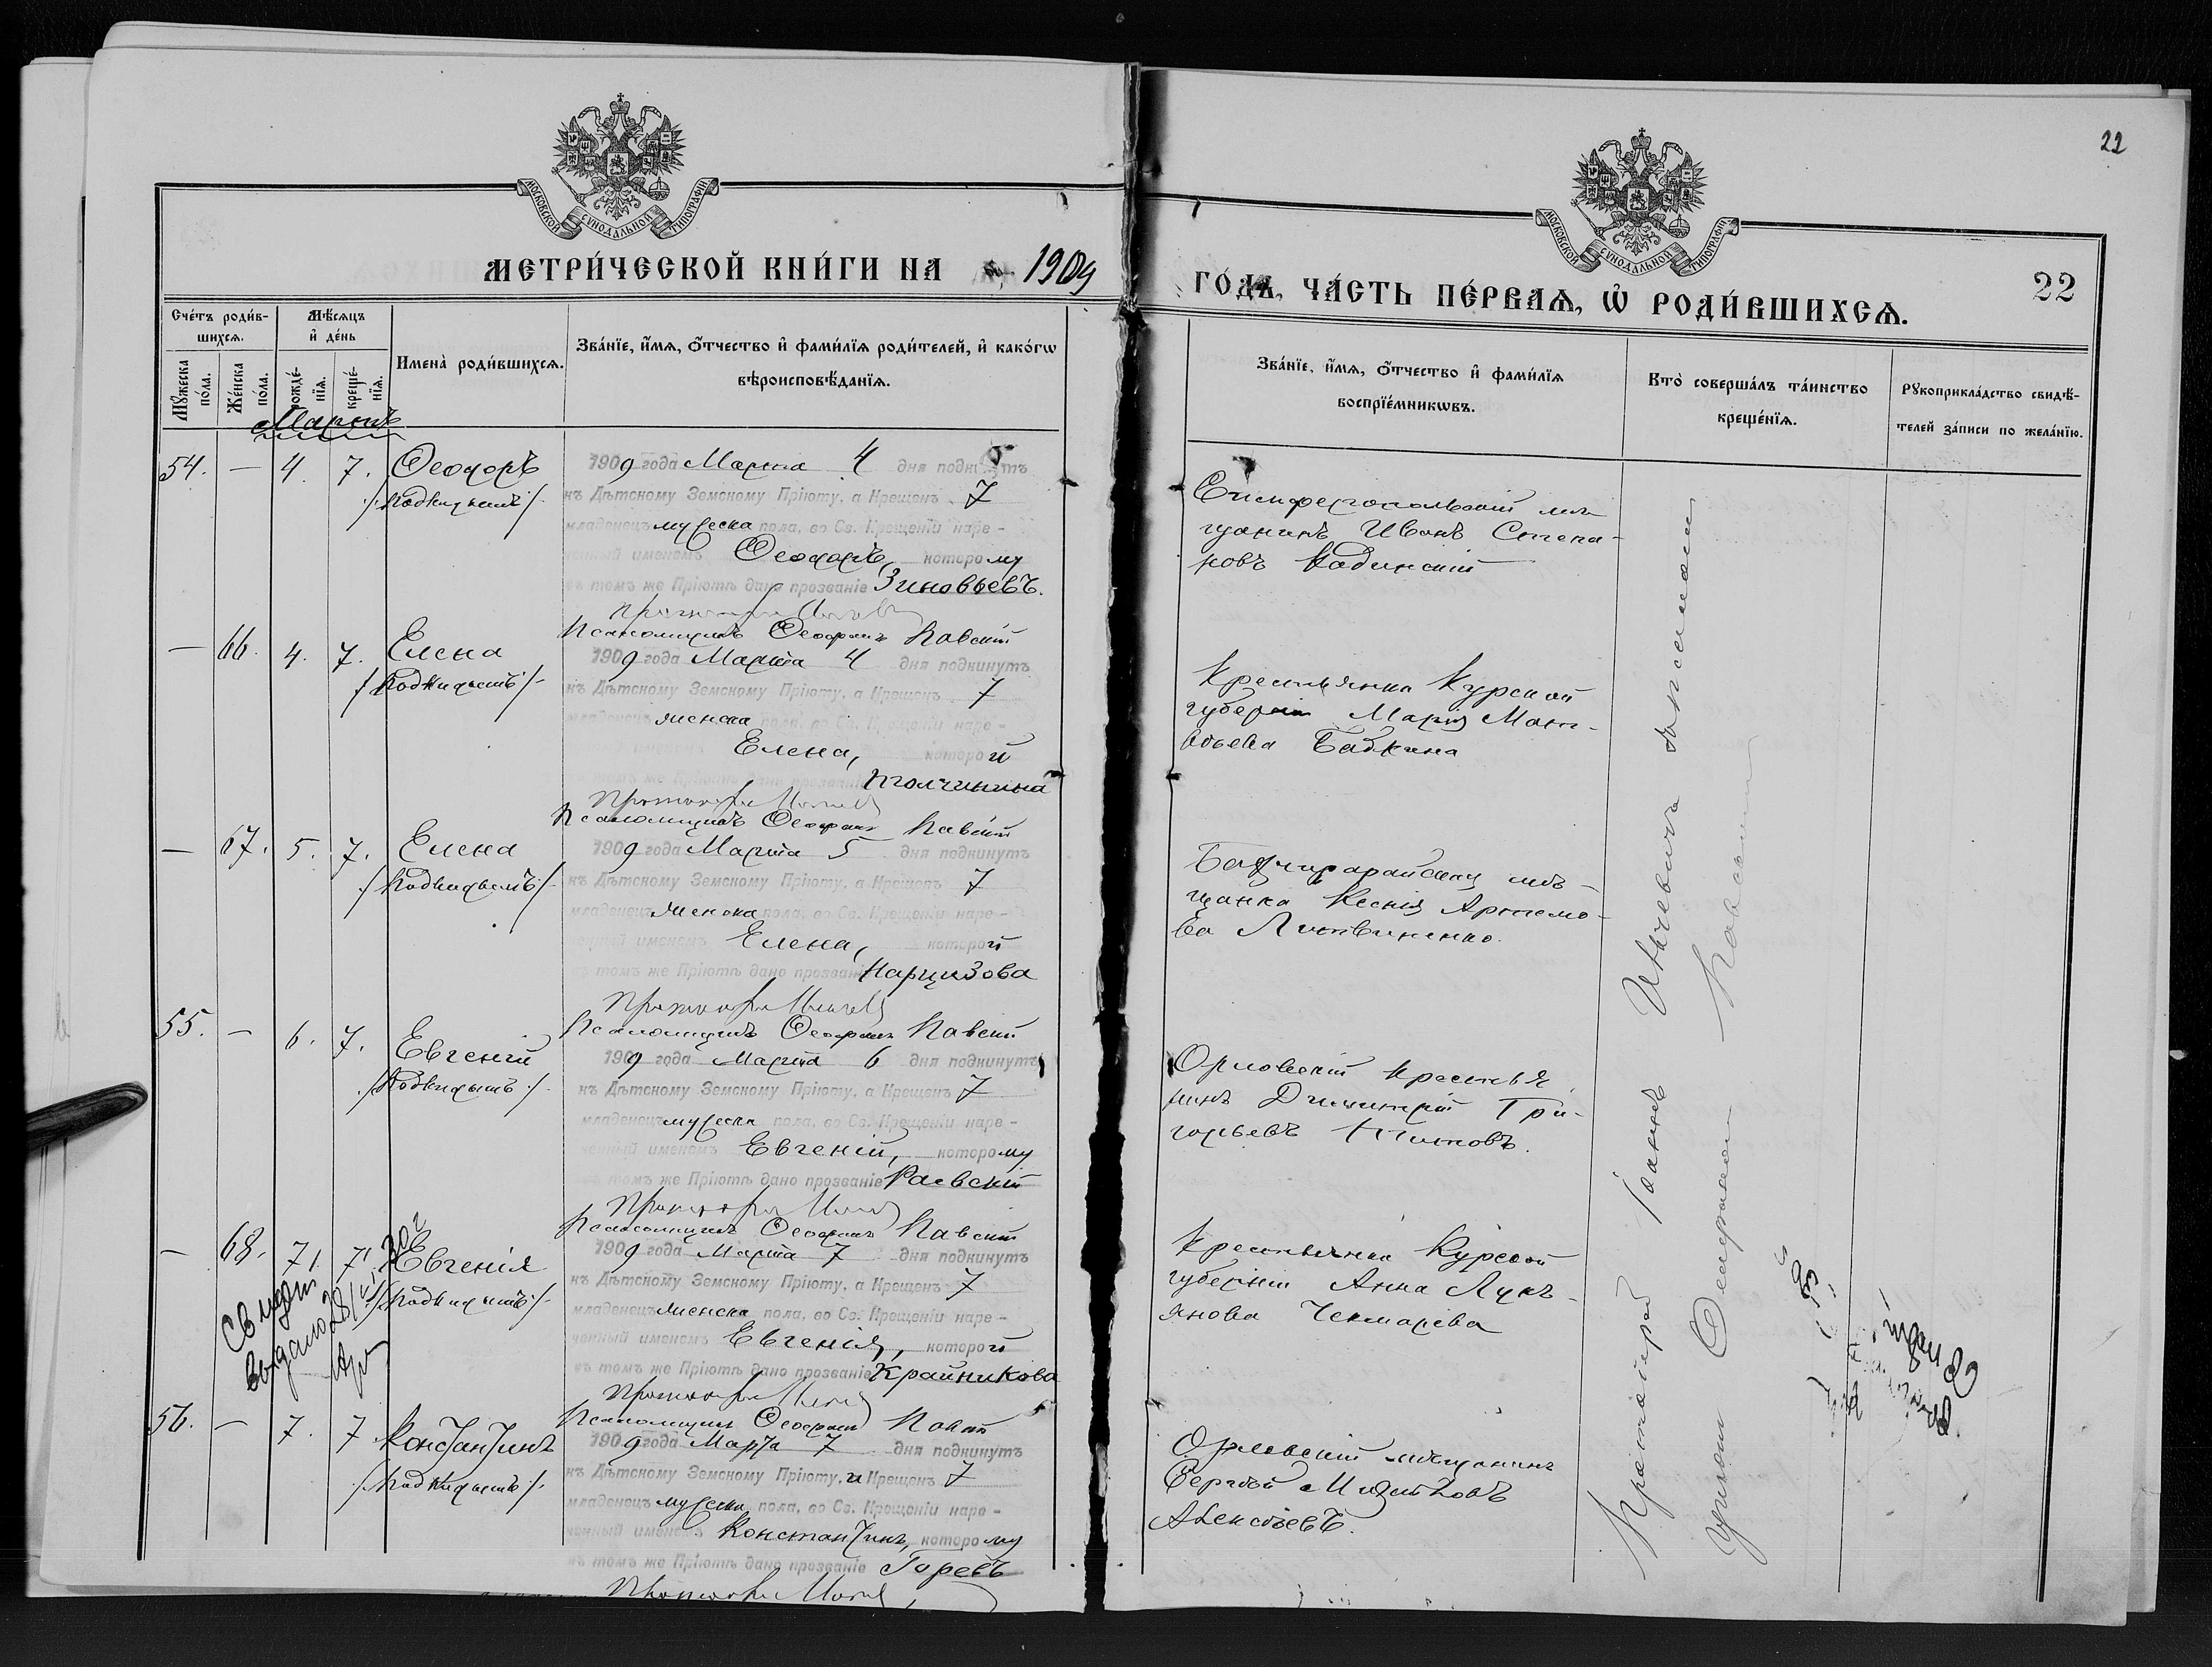 22
МОСКОВСКОЙ СѴНОДАЛЬНОЙ ТИПОГРАФІИ.
МОСКОВСКОЙ СѴНОДАЛЬНОЙ ТИПОГРАФІИ.
МЕТРИ́ЧЕСКОЙ КНИ́ГИ НА 1909
ГО́ДЪ, ЧА́СТЬ ПЕ́РВАѦ, Ѡ҆ РОДИ́ВШИХСѦ.
22
Сче́тъ роди́в-
шихсѧ.
Мꙋ́жеска по́ла.
Же́нска по́ла.
Мѣ́сѧцъ
и҆ де́нь
рожде́-нїѧ.
креще́-нїѧ.
Имена̀ роди́вшихсѧ.
Зва́нїе, и҆́мѧ, о҆́тчество и҆ фами́лїѧ роди́телей, и҆ како́гѡ
вѣроисповѣ́данїѧ.
Зва́нїе, и҆́мѧ, о҆́тчество и҆ фами́лїѧ
воспрїе́мникѡвъ.
Кто̀ соверша́лъ та́инство
креще́нїѧ.
Рꙋкоприкла́дство свидѣ́-
телей за́писи по жела́нїю.
Мартъ
54. — 4. 7. Ѳеодоръ
/Подкидышъ/
1909 года Марта 4 дня подкинутъ
къ Дѣтскому Земскому Пріюту, а Крещенъ 7
младенецъ мужеска пола, во Св. Крещеніи наре-
ченный именемъ Ѳеодоръ, которому
въ томъ же Пріютѣ дано прозваніе Зиновьевъ.
Псаломщикъ Ѳеофанъ Павскій
Симферопольскій мѣ-
щанинъ Иванъ Степа-
новъ Кадинскій
— 66. 4. 7. Елена
/Подкидышъ/
1909 года Марта 4 дня подкинутъ
къ Дѣтскому Земскому Пріюту, а Крещенъ 7
младенецъ женска пола, во Св. Крещеніи наре-
именемъ Елена, которой
въ томъ же Пріютѣ дано прозваніе Птолчинина
Псаломщикъ Ѳеофанъ Павскій
Крестьянка Курской
губерніи Марія Мат-
вѣева Бабкина
— 67. 5. 7. Елена
/Подкидышъ/
1909 года Марта 5 дня подкинутъ
къ Дѣтскому Земскому Пріюту, а Крещенъ 7
младенецъ женска пола, во Св. Крещеніи наре-
ченный именемъ Елена, которой
въ томъ же Пріютѣ дано прозваніе Нарцизова
Псаломщикъ Ѳеофанъ Павскій
Бахчисарайская мѣ-
щанка Ксенія Артемо-
ва Литвиненко.
55. — 6. 7. Евгеній
/Подкидышъ/
1909 года Марта 6 дня подкинутъ
къ Дѣтскому Земскому Пріюту, а Крещенъ 7
младенецъ мужеска пола, во Св. Крещеніи наре-
ченный именемъ Евгеній, которому
въ томъ же Пріютѣ дано прозваніе Раевскій
Псаломщикъ Ѳеофанъ Павскій
Орловскій крестья-
нинъ Димитрій Гри-
горьевъ Титовъ.
— 68. 7. 7. Евгенія
/Подкидышъ/
1909 года Марта 7 дня подкинутъ
къ Дѣтскому Земскому Пріюту, а Крещенъ 7
младенецъ женска пола, во Св. Крещеніи наре-
ченный именемъ Евгенія, которой
въ томъ же Пріютѣ дано прозваніе Крайникова
Псаломщикъ Ѳеофанъ Павскій
Крестьянка Курской
губерніи Анна Лукь-
янова Чекмарева
56. — 7. 7 Константинъ
/Подкидышъ/
1909 года Марта 7 дня подкинутъ
къ Дѣтскому Земскому Пріюту, и Крещенъ 7
младенецъ мужеска пола, во Св. Крещеніи наре-
ченный именемъ Константинъ, которому
въ томъ же Пріютѣ дано прозваніе Горевъ
Орловскій мѣщанинъ
Сергѣй
Алексѣевъ.
Протоіерей Іоаннъ
Ѳеофаномъ Павскимъ